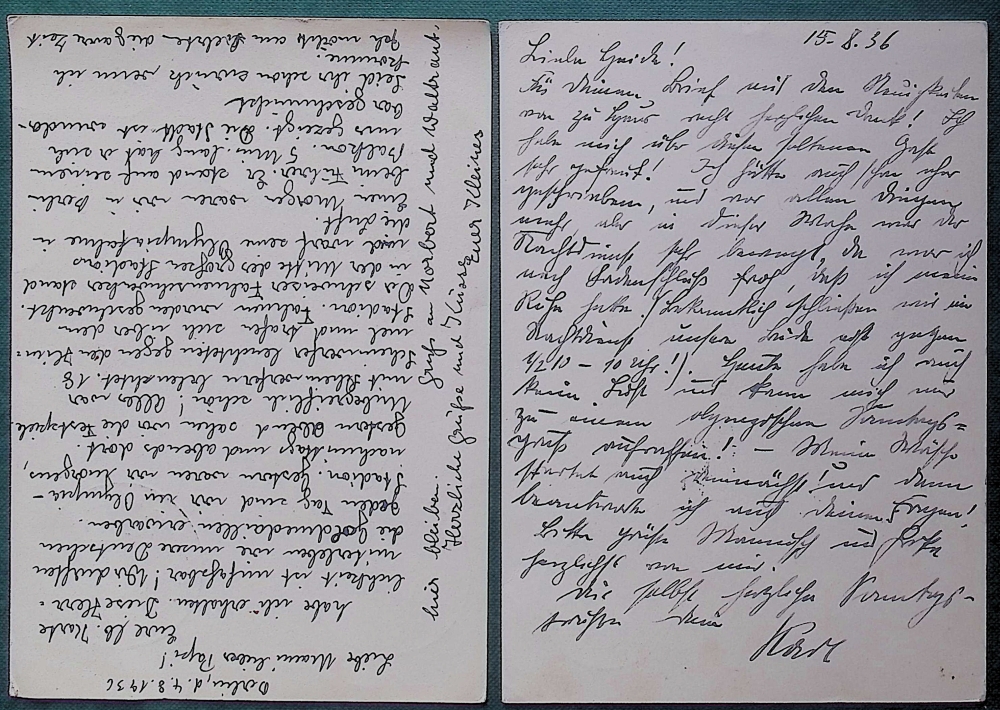 Berlin, d. 4.8.1936
Liebe Mami lieber Papi!
Eure lb. Karte
habe ich erhalten. Diese Herr-
lichkeit ist unfassbar! Wir durften
miterleben wie unsere Deutschen
die Goldmedaillen erwarben.
Jeden Tag sind wir im Olympia-
Stadion. Gestern waren wir morgens,
nachmittags und abends dort.
Gestern Abend sahen wir die Festspiele.
Unbegreiflich schön! Alles war
mit Scheinwerfern beleuchtet. 18
Scheinwerfer leuchteten gegen den Him-
mel und trafen sich über dem
Stadion. Fahnen wurden geschwenkt.
Der schweizer Fahnenschwenker stand
in der Mitte des großen Stadions
und warf seine Olympiafahne in
die Luft.
Einen Morgen waren wir in Berlin
beim Führer. Er stand auf seinem
Balkon. 5 Min. lang hat er sich
uns gezeigt. Die Stadt ist wunder-
bar geschmückt.
Seid ihr schon wenn ich
komme.
Ich möchte am liebsten die ganze Zeit
hier bleiben.
Gruß an Norbert und Waltraut.
Herzliche Grüsse und Küsse
Euer Kleines
15.8.36
Liebe
Für Deinen Brief mit den Neuigkeiten
von zu Haus recht herzlichen Dank! Ich
habe mich über diesen seltenen Gast
sehr gefreut! Ich hätte auch schon eher
geschrieben, und vor allen Dingen
mehr aber in dieser Woche war der
Nachtdienst sehr bewegt, da war ich
nach Ladenschluß froh, daß ich meine
Ruhe hatte. (Bekanntlich schließen wir im
Nachtdienst unsere Bude erst gegen
1/2 10 - 10 Uhr!). Heute habe ich auch
keine Lust und kann mich nur
zu einem olympischen Sonntags=
gruß aufraffen! - Meine Wäsche
startet auch demnächst! und dann
beantworte ich auch Deine Fragen!
Bitte grüße und
herzlichst von mir!
Dir selbst herzliche Sonntags-
grüße Dein
Karl